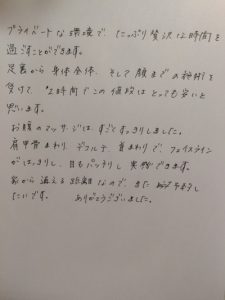 プライベートな環境で、たっぷり贅沢な時間を
過ごすことができます。
足裏から身体全体、そして顔までの施術を
受けて、2時間でこの値段はとっても安いと
思います。
お腹のマッサージは、すごくすっきりしました。
肩甲骨まわり、デコルテ、首まわりで、フェイスライン
がはっきりし、目もパッチリし実感できます。
家から通える距離なので、また予約
したいです。 ありがとうございました。